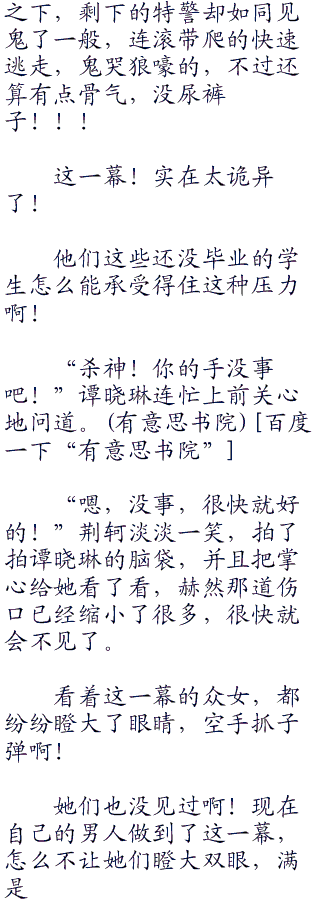 之下，剩下的特警却如同见
鬼了一般，连滚带爬的快速
逃走，鬼哭狼嚎的，不过还
算有点骨气，没尿裤
子！！！
这一幕！实在太诡异
了！
他们这些还没毕业的学
生怎么能承受得住这种压力
啊！
“杀神！你的手没事
吧！”谭晓琳连忙上前关心
地问道。(有意思书院)[百度
一下“有意思书院”]
“嗯，没事，很快就好
的！”荆轲淡淡一笑，拍了
拍谭晓琳的脑袋，并且把掌
心给她看了看，赫然那道伤
口已经缩小了很多，很快就
会不见了。
看着这一幕的众女，都
纷纷瞪大了眼睛，空手抓子
弹啊！
她们也没见过啊！现在
自己的男人做到了这一幕，
怎么不让她们瞪大双眼，满
是